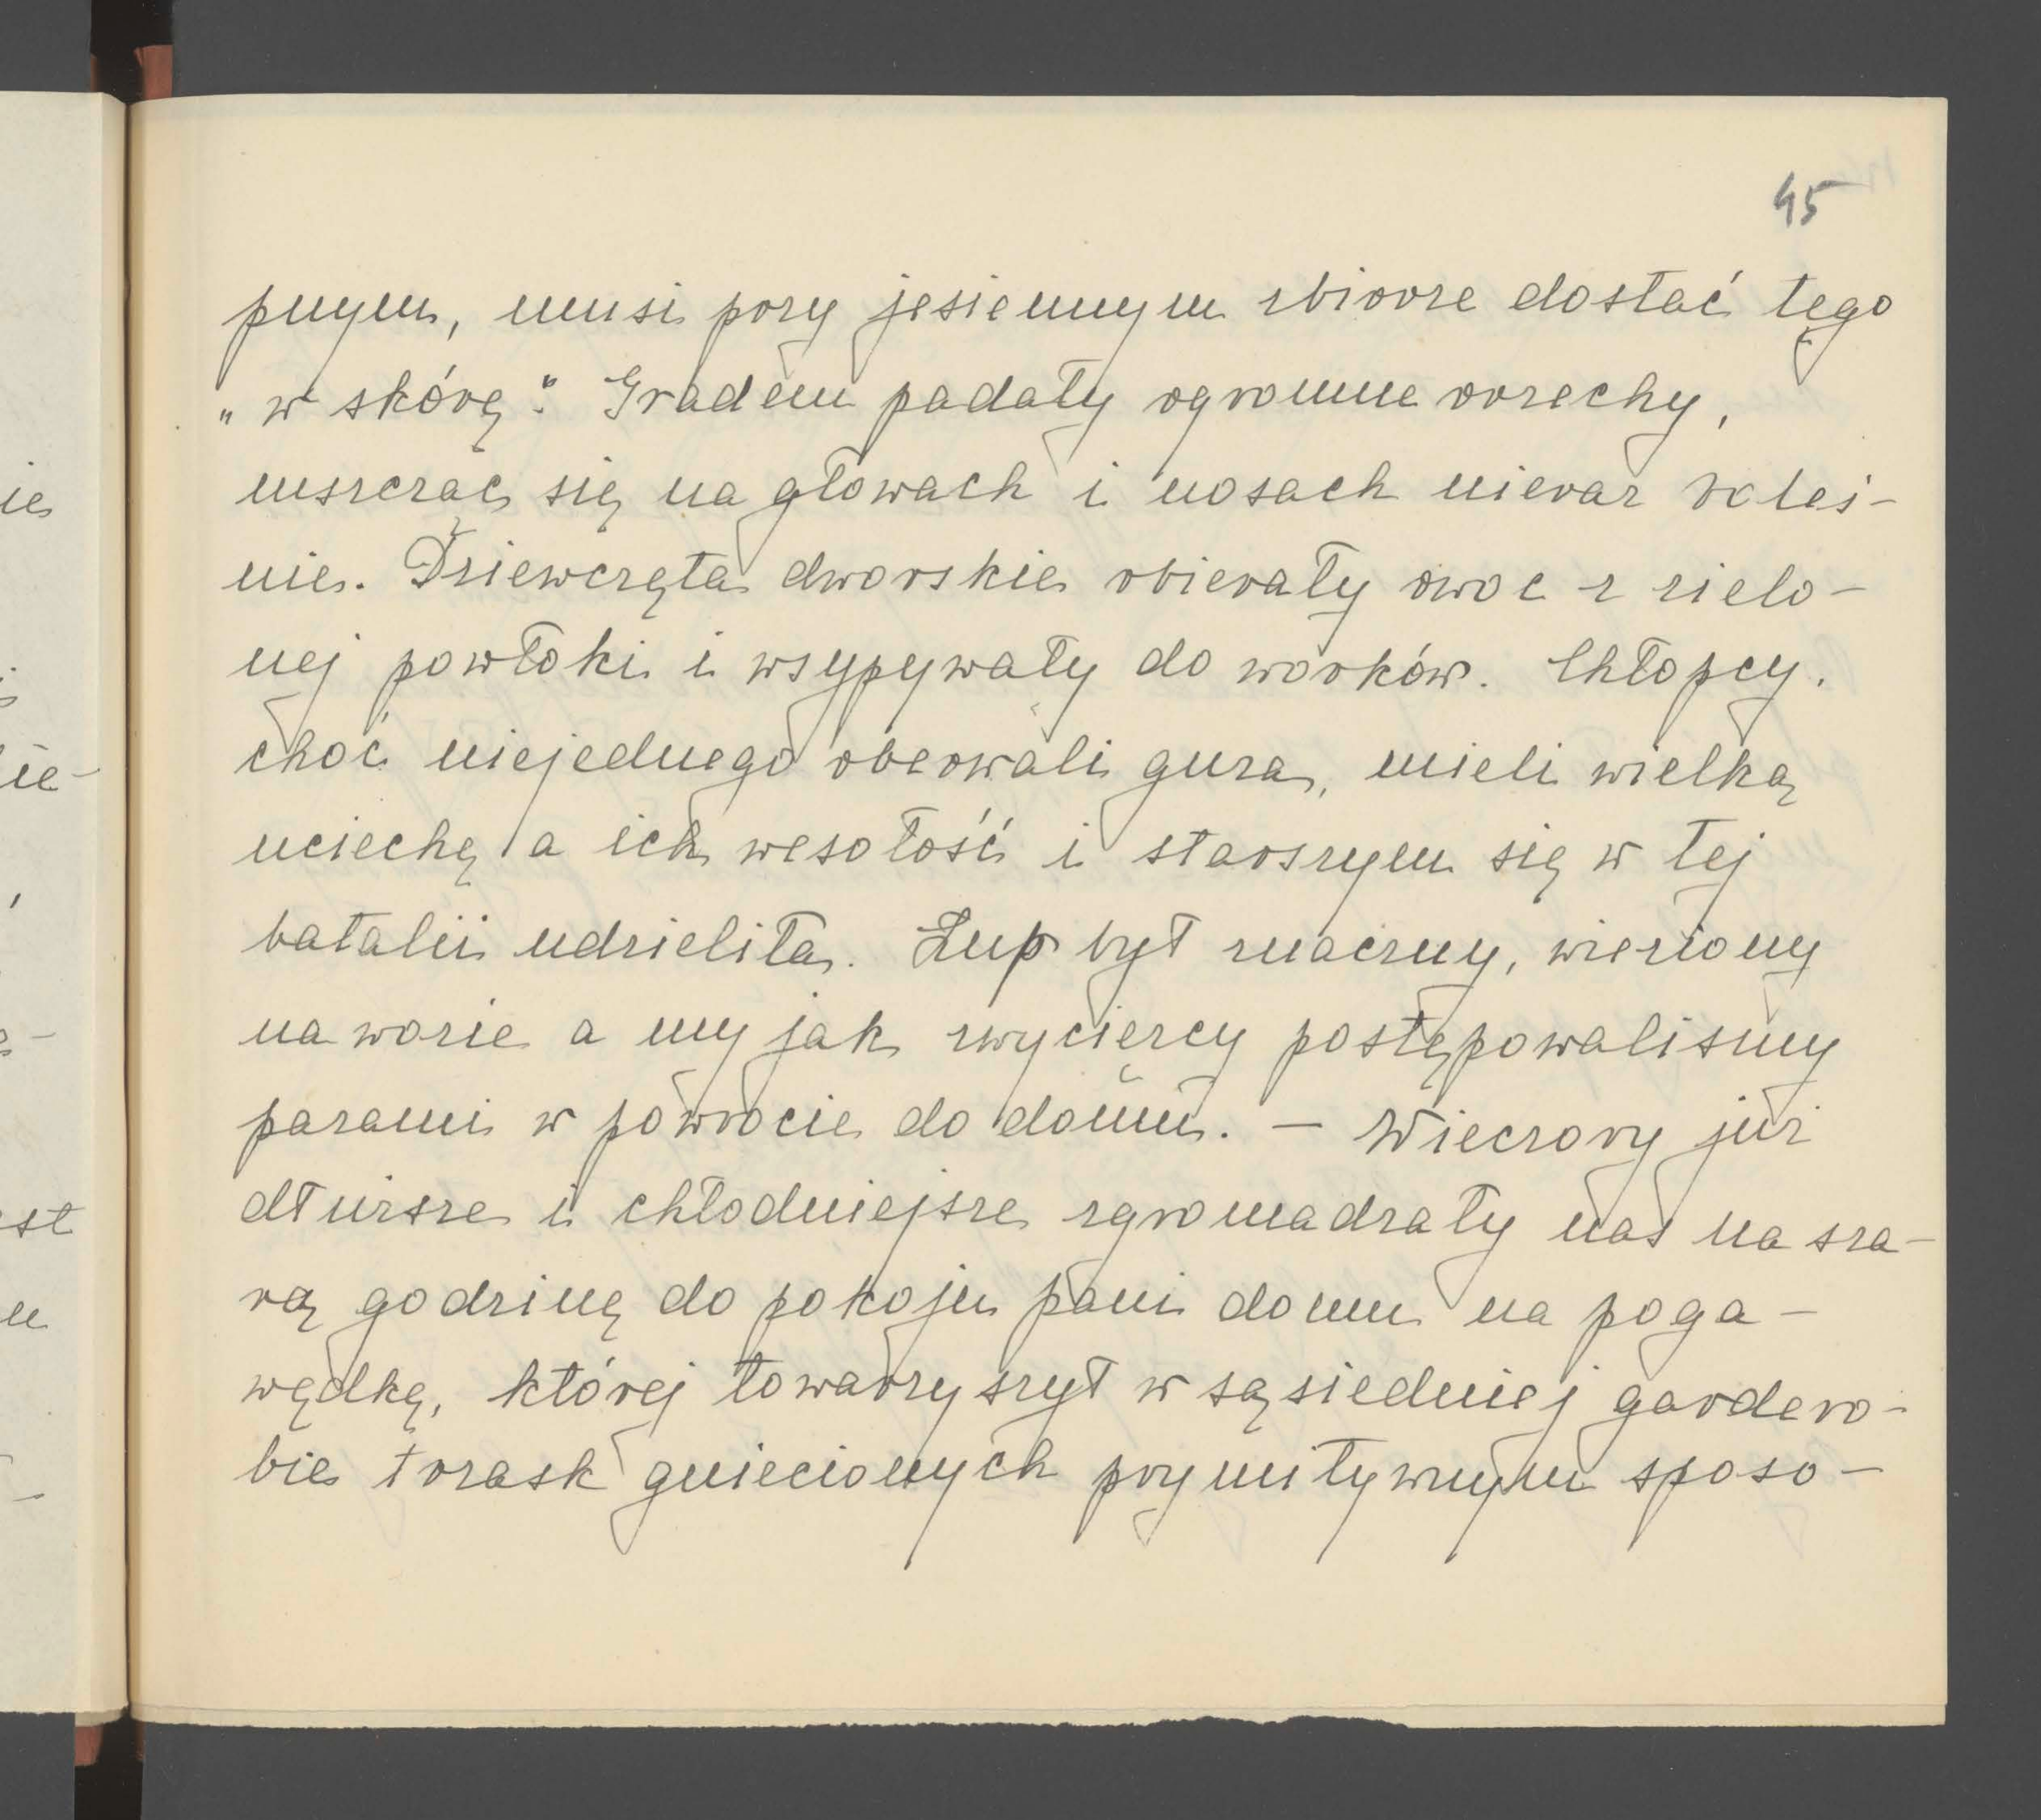 45
pnym, musi przy jesiennym zbiorze dostać tęgo
„w skórę". Gradem padały ogromne orzechy,
mszcząc się na głowach i nosach nieraz boleś-
nie. Dziewczęta dworskie obierały owoc z zielo-
nej powłoki i wsypywały do worków. Chłopcy,
choć niejednego oberwali guza, mieli wielką
uciechę, a ich wesołość i starszym się w tej
batalii udzieliła. Łup był znaczny, wieziony
na wozie a my jak zwycięzcy postępowaliśmy
parami w powrocie do domu. — Wieczory już
dłuższe i chłodniejsze zgromadzały nas na sza-
rą godzinę do pokoju pani domu na poga-
wędkę, której towarzyszył w sąsiedniej gardero-
bie trzask gniecionych prymitywnym sposo-